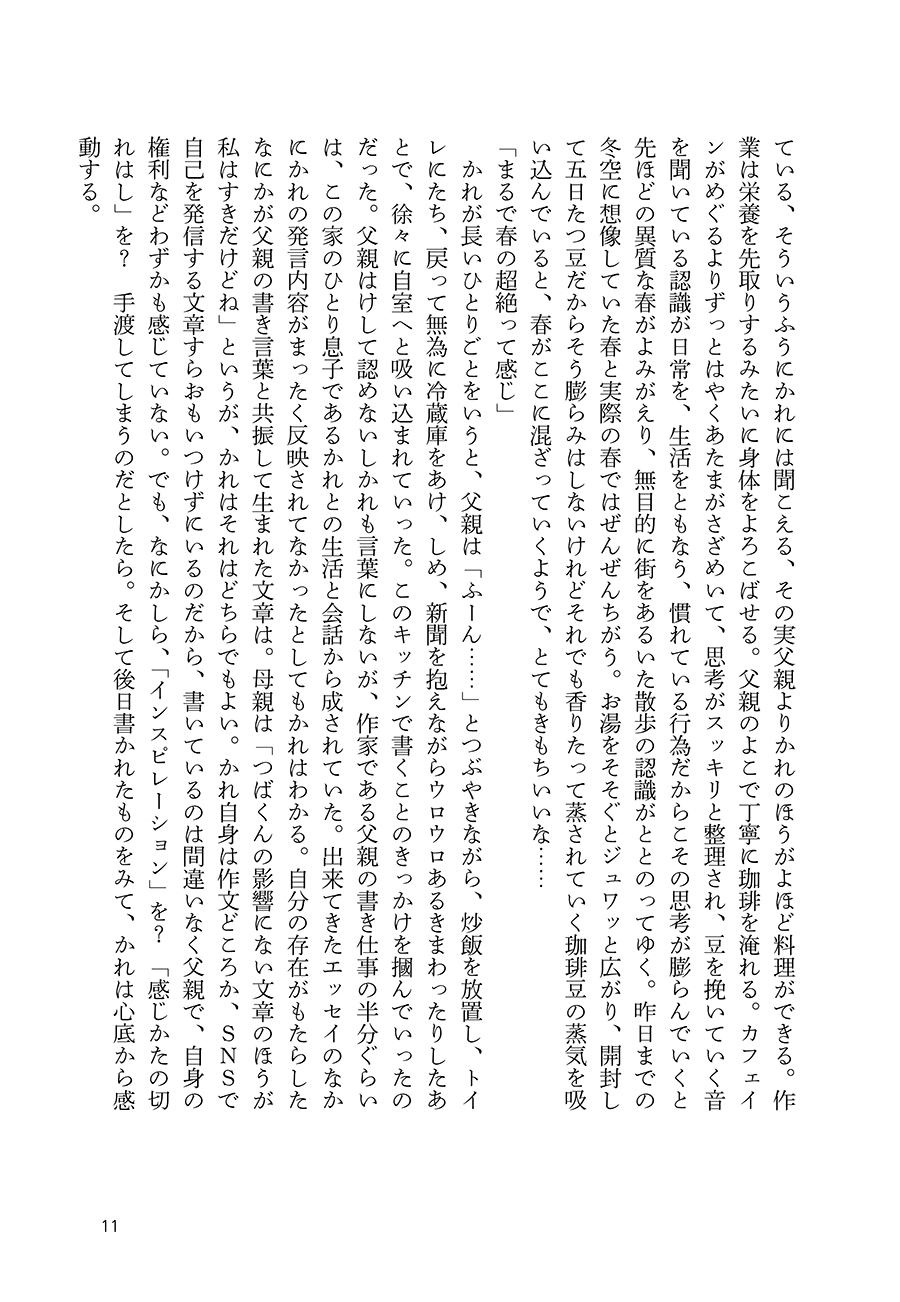 ている、そういうふうにかれには聞こえる、その実父親よりかれのほうがよほど料理ができる。作
業は栄養を先取りするみたいに身体をよろこばせる。父親のよこで丁寧に珈琲を淹れる。カフェイ
ンがめぐるよりずっとはやくあたまがさざめいて、思考がスッキリと整理され、豆を挽いていく音
を聞いている認識が日常を、生活をともなう、慣れている行為だからこその思考が膨らんでいくと
先ほどの異質な春がよみがえり、無目的に街をあるいた散歩の認識がととのってゆく。昨日までの
冬空に想像していた春と実際の春ではぜんぜんちがう。お湯をそそぐとジュワッと広がり、開封し
て五日たつ豆だからそう膨らみはしないけれどそれでも香りたって蒸されていく珈琲豆の蒸気を吸
い込んでいると、春がここに混ざっていくようで、とてもきもちいいな……
「まるで春の超絶って感じ」
　かれが長いひとりごとをいうと、父親は「ふーん……」とつぶやきながら、炒飯を放置し、トイ
レにたち、戻って無為に冷蔵庫をあけ、しめ、新聞を抱えながらウロウロあるきまわったりしたあ
とで、徐々に自室へと吸い込まれていった。このキッチンで書くことのきっかけを摑んでいったの
だった。父親はけして認めないしかれも言葉にしないが、作家である父親の書き仕事の半分ぐらい
は、この家のひとり息子であるかれとの生活と会話から成されていた。出来てきたエッセイのなか
にかれの発言内容がまったく反映されてなかったとしてもかれはわかる。自分の存在がもたらした
なにかが父親の書き言葉と共振して生まれた文章は。母親は「つばくんの影響にない文章のほうが
私はすきだけどね」というが、かれはそれはどちらでもよい。かれ自身は作文どころか、ＳＮＳで
自己を発信する文章すらおもいつけずにいるのだから、書いているのは間違いなく父親で、自身の
権利などわずかも感じていない。でも、なにかしら、「インスピレーション」を？　「感じかたの切
れはし」を？　手渡してしまうのだとしたら。そして後日書かれたものをみて、かれは心底から感
動する。
11